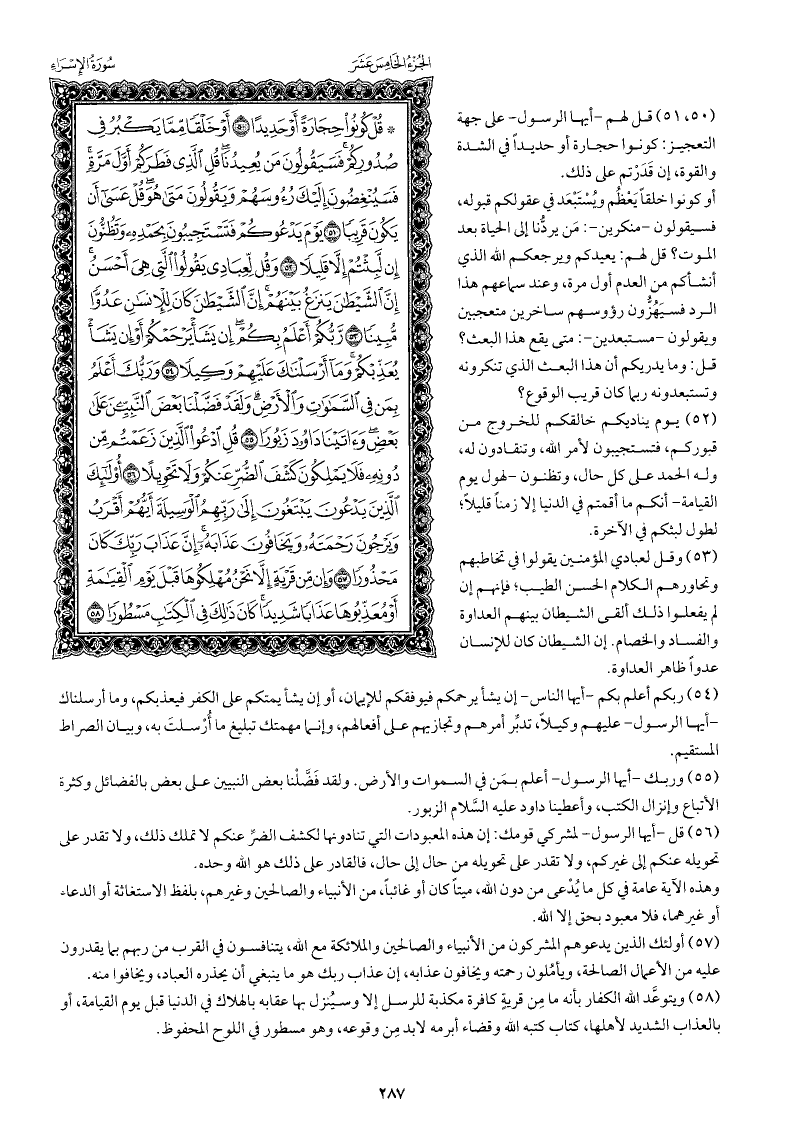 الجزء الخامس عشر
سورة الإسراء
* قُلْ كُونُوا۟ حِجَارَةً أَوْ حَدِيدًا ۝٥٠ أَوْ خَلْقًا مِّمَّا يَكْبُرُ فِى
صُدُورِكُمْ ۚ فَسَيَقُولُونَ مَن يُعِيدُنَا ۖ قُلِ ٱلَّذِى فَطَرَكُمْ أَوَّلَ مَرَّةٍ ۚ
فَسَيُنْغِضُونَ إِلَيْكَ رُءُوسَهُمْ وَيَقُولُونَ مَتَىٰ هُوَ ۖ قُلْ عَسَىٰٓ أَن
يَكُونَ قَرِيبًا ۝٥١ يَوْمَ يَدْعُوكُمْ فَتَسْتَجِيبُونَ بِحَمْدِهِۦ وَتَظُنُّونَ
إِن لَّبِثْتُمْ إِلَّا قَلِيلًا ۝٥٢ وَقُل لِّعِبَادِى يَقُولُوا۟ ٱلَّتِى هِىَ أَحْسَنُ ۚ
إِنَّ ٱلشَّيْطَـٰنَ يَنزَغُ بَيْنَهُمْ ۚ إِنَّ ٱلشَّيْطَـٰنَ كَانَ لِلْإِنسَـٰنِ عَدُوًّا
مُّبِينًا ۝٥٣ رَّبُّكُمْ أَعْلَمُ بِكُمْ ۖ إِن يَشَأْ يَرْحَمْكُمْ أَوْ إِن يَشَأْ
يُعَذِّبْكُمْ ۚ وَمَآ أَرْسَلْنَـٰكَ عَلَيْهِمْ وَكِيلًا ۝٥٤ وَرَبُّكَ أَعْلَمُ
بِمَن فِى ٱلسَّمَـٰوَٰتِ وَٱلْأَرْضِ ۗ وَلَقَدْ فَضَّلْنَا بَعْضَ ٱلنَّبِيِّـۧنَ عَلَىٰ
بَعْضٍ ۖ وَءَاتَيْنَا دَاوُۥدَ زَبُورًا ۝٥٥ قُلِ ٱدْعُوا۟ ٱلَّذِينَ زَعَمْتُم مِّن
دُونِهِۦ فَلَا يَمْلِكُونَ كَشْفَ ٱلضُّرِّ عَنكُمْ وَلَا تَحْوِيلًا ۝٥٦ أُو۟لَـٰٓئِكَ
ٱلَّذِينَ يَدْعُونَ يَبْتَغُونَ إِلَىٰ رَبِّهِمُ ٱلْوَسِيلَةَ أَيُّهُمْ أَقْرَبُ
وَيَرْجُونَ رَحْمَتَهُۥ وَيَخَافُونَ عَذَابَهُۥٓ ۚ إِنَّ عَذَابَ رَبِّكَ كَانَ
مَحْذُورًا ۝٥٧ وَإِن مِّن قَرْيَةٍ إِلَّا نَحْنُ مُهْلِكُوهَا قَبْلَ يَوْمِ ٱلْقِيَـٰمَةِ
أَوْ مُعَذِّبُوهَا عَذَابًا شَدِيدًا ۚ كَانَ ذَٰلِكَ فِى ٱلْكِتَـٰبِ مَسْطُورًا ۝٥٨
(٥٠، ٥١) قل لهم -أيها الرسول- على جهة
التعجيز: كونوا حجارة أو حديداً في الشدة
والقوة، إن قَدَرْتم على ذلك.
أو كونوا خلقاً يَعْظُم ويُسْتَبْعَد في عقولكم قبوله،
فسيقولون -منكرين-: مَن يردُّنا إلى الحياة بعد
الموت؟ قل لهم: يعيدكم ويرجعكم الله الذي
أنشأكم من العدم أول مرة، وعند سماعهم هذا
الرد فسيَهُزُّون رؤوسهم ساخرين متعجبين
ويقولون -مستبعدين-: متى يقع هذا البعث؟
قل: وما يدريكم أن هذا البعث الذي تنكرونه
وتستبعدونه ربما كان قريب الوقوع؟
(٥٢) يوم يناديكم خالقكم للخروج من
قبوركم، فتستجيبون لأمر الله، وتنقادون له،
وله الحمد على كل حال، وتظنون -لهول يوم
القيامة- أنكم ما أقمتم في الدنيا إلا زمناً قليلاً؛
لطول لبثكم في الآخرة.
(٥٣) وقل لعبادي المؤمنين يقولوا في تخاطبهم
وتحاورهم الكلام الحسن الطيب؛ فإنهم إن
لم يفعلوا ذلك ألقى الشيطان بينهم العداوة
والفساد والخصام. إن الشيطان كان للإنسان
عدواً ظاهر العداوة.
(٥٤) ربكم أعلم بكم -أيها الناس- إن يشأ يرحمكم فيوفقكم للإيمان، أو إن يشأ يمتكم على الكفر فيعذبكم، وما أرسلناك
-أيها الرسول- عليهم وكيلاً، تدبِّر أمرهم وتجازيهم على أفعالهم، وإنما مهمتك تبليغ ما أُرْسلتَ به، وبيان الصراط
المستقيم.
(٥٥) وربك -أيها الرسول- أعلم بمَن في السموات والأرض. ولقد فَضَّلْنا بعض النبيين على بعض بالفضائل وكثرة
الأتباع وإنزال الكتب، وأعطينا داود عليه السَّلام الزبور.
(٥٦) قل -أيها الرسول- لمشركي قومك: إن هذه المعبودات التي تنادونها لكشف الضرِّ عنكم لا تملك ذلك، ولا تقدر على
تحويله عنكم إلى غيركم، ولا تقدر على تحويله من حال إلى حال، فالقادر على ذلك هو الله وحده.
وهذه الآية عامة في كل ما يُدْعى من دون الله، ميتاً كان أو غائباً، من الأنبياء والصالحين وغيرهم، بلفظ الاستغاثة أو الدعاء
أو غيرهما، فلا معبود بحق إلا الله.
(٥٧) أولئك الذين يدعوهم المشركون من الأنبياء والصالحين والملائكة مع الله، يتنافسون في القرب من ربهم بما يقدرون
عليه من الأعمال الصالحة، ويأمُلون رحمته ويخافون عذابه، إن عذاب ربك هو ما ينبغي أن يحذره العباد، ويخافوا منه.
(٥٨) ويتوعَّد الله الكفار بأنه ما مِن قريةٍ كافرة مكذبة للرسل إلا وسيُنزل بها عقابه بالهلاك في الدنيا قبل يوم القيامة، أو
بالعذاب الشديد لأهلها، كتاب كتبه الله وقضاء أبرمه لابد مِن وقوعه، وهو مسطور في اللوح المحفوظ.
٢٨٧